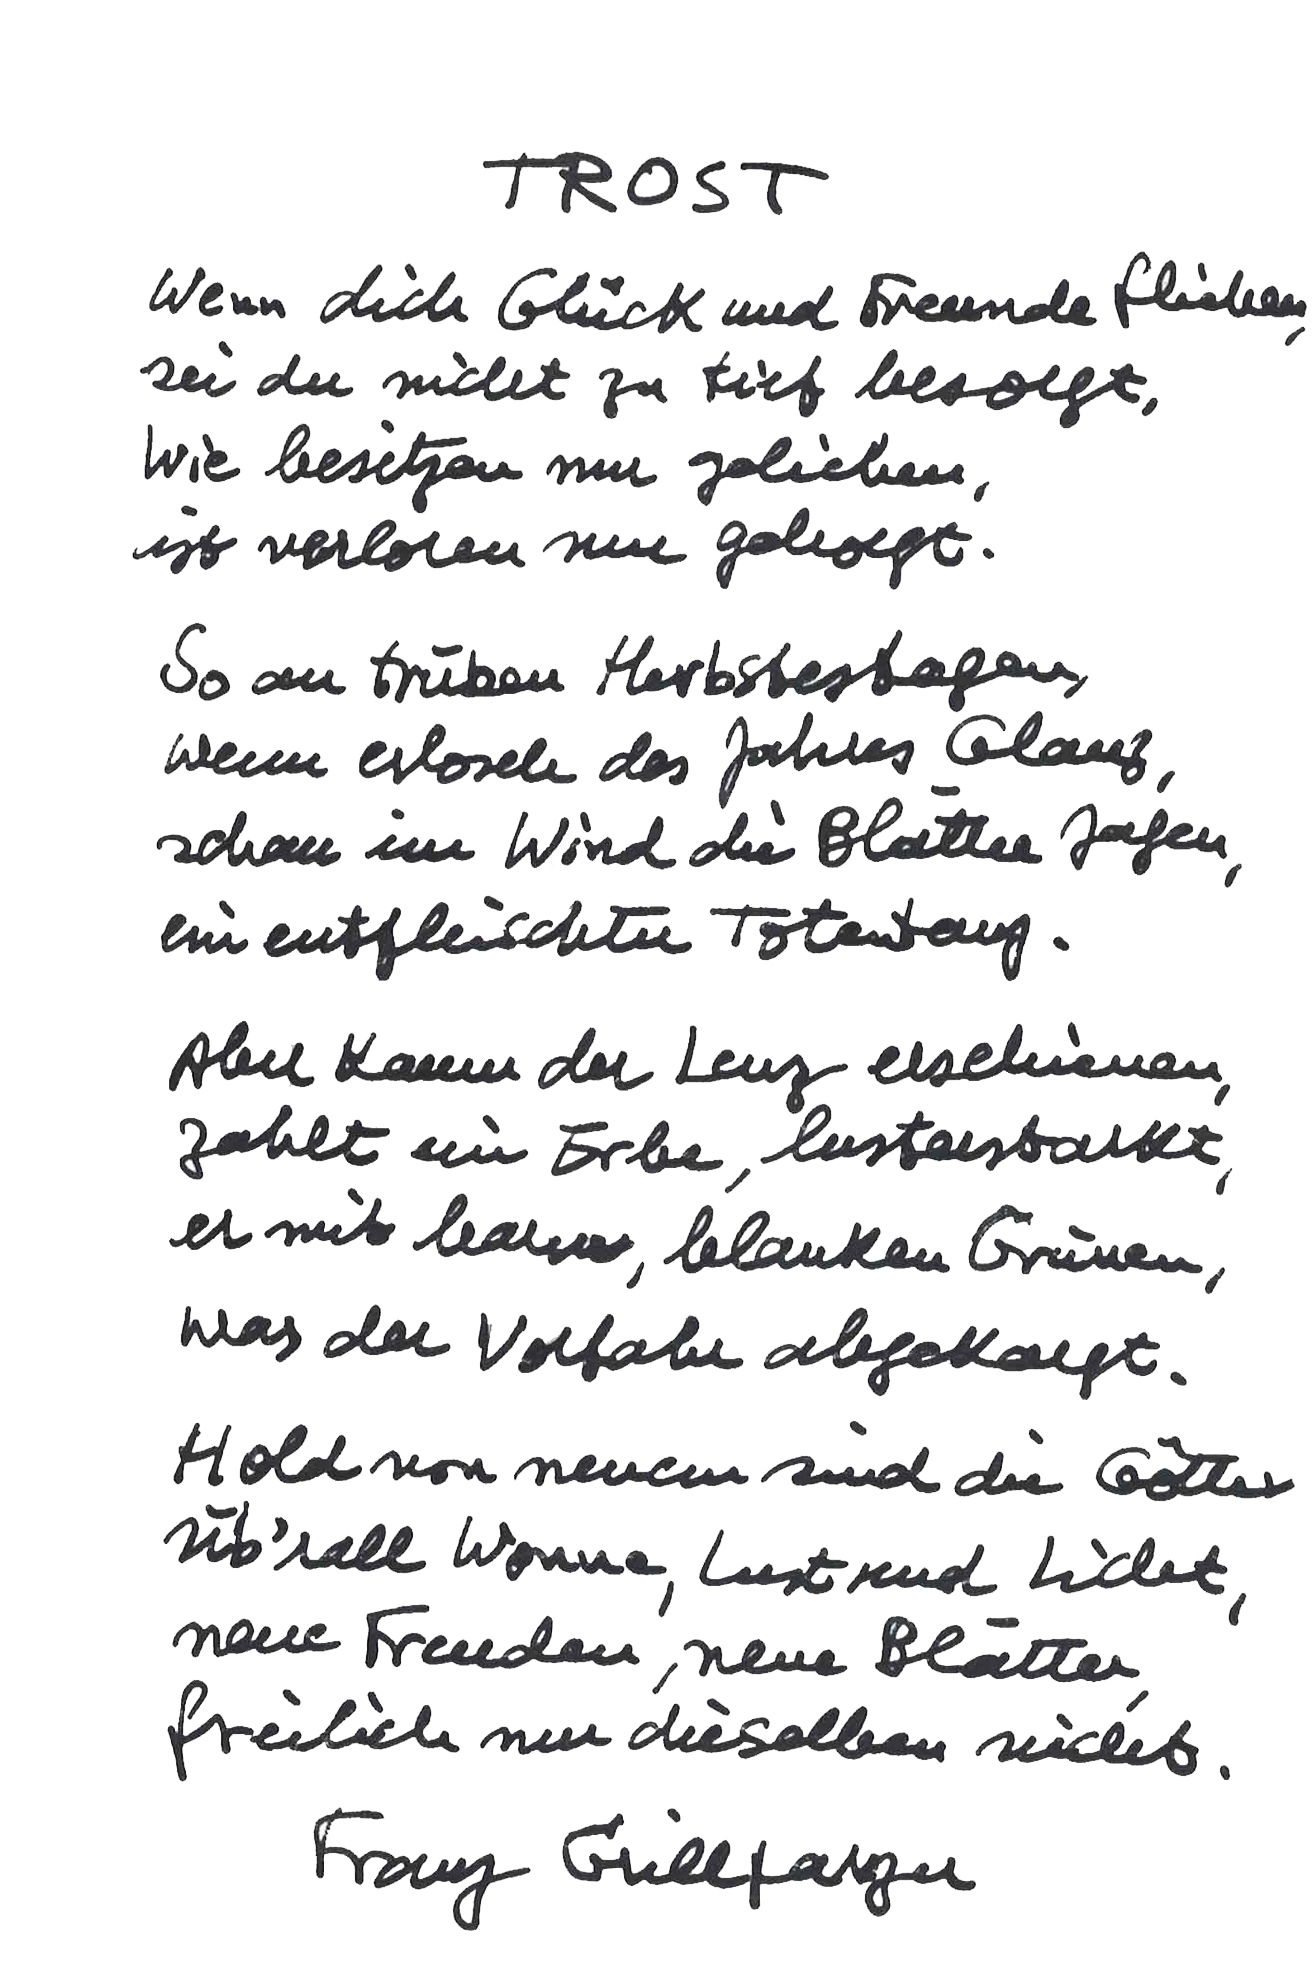 TROST
Wenn dich Glück und Freunde fliehen,
sei du nicht zu tief besorgt,
Wie besitzen nur geliehen,
ist verloren nur geborgt.
So an trüben Herbstestagen,
wenn erlosch des Jahres Glanz,
schau im Wind die Blätter jagen,
ein entfleischter Totentanz.
Aber kaum der Lenz erschienen,
zahlt ein Erbe, lusterstarkt,
er mit barem, blanken Grünen,
was der Vorfahr abgekargt.
Hold von neuem sind die Götter
Üb'rall Wonne, Lust und Licht,
neue Freuden, neue Blätter,
freilich nur dieselben nicht.
Franz Grillparzer